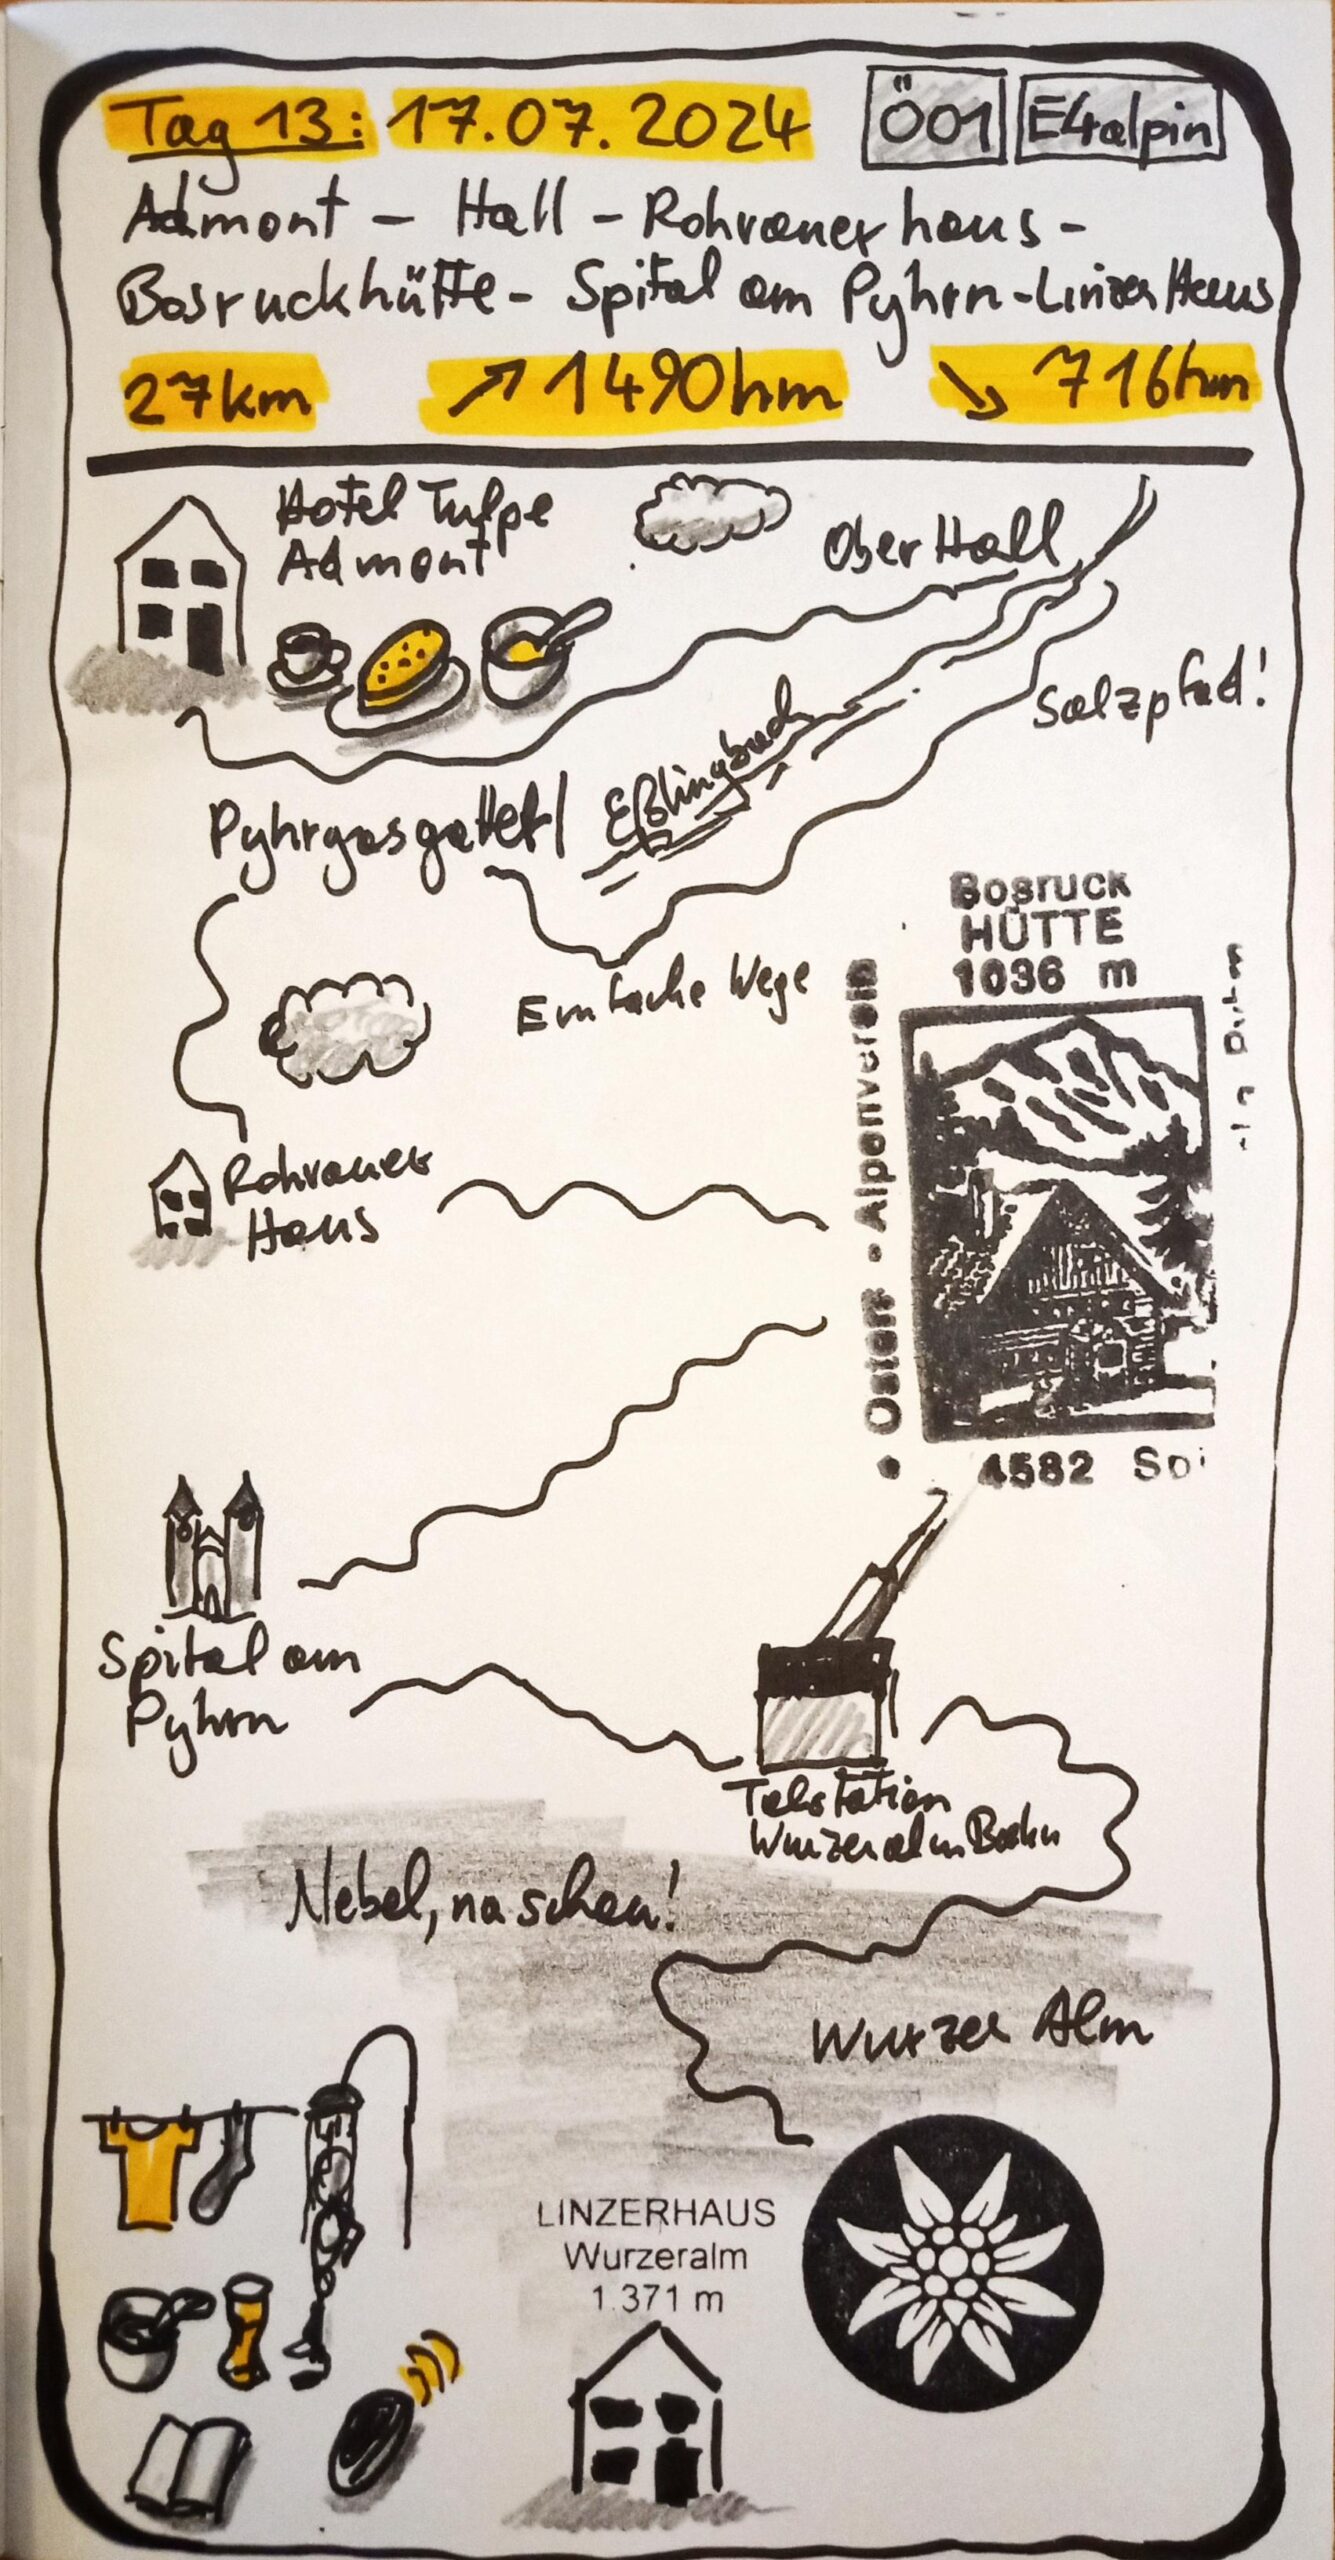 Tag 13: 17.07.2024
Ö01
E4alpin
Admont – Hall – Rohrauerhaus –
Bosruckhütte – Spital am Pyhrn – Linzer Haus
27km
↗ 1490hm
↘ 716hm
Hotel Tulpe
Admont
Ober Hall
Salzpfad!
Eßlingbach
Pyhrgasgatterl
Einfache Wege
Bosruck
HÜTTE
1036 m
• Österr. • Alpenverein
4582 Spi
Rohrauer
Haus
Spital am
Pyhrn
Talstation
WurzeralmBahn
Nebel, naschen!
Wurzer Alm
LINZERHAUS
Wurzeralm
1.371 m